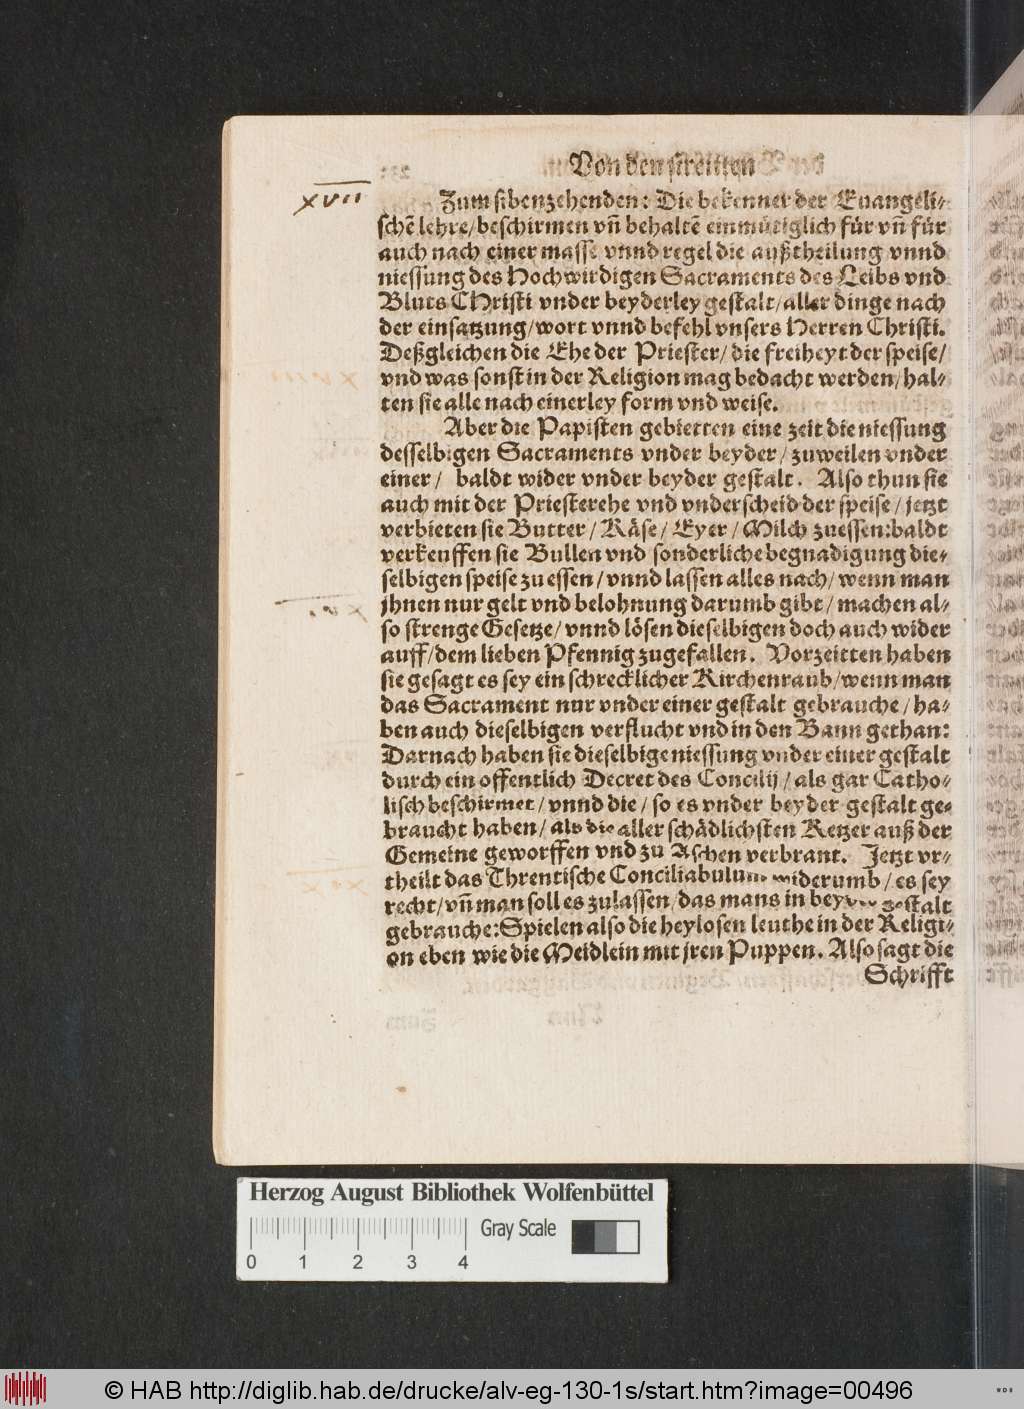 Von den streitten
XVII
Zum sibenzehenden: Die bekenner der Euangeli-
schē lehre/beschirmen vn̄ behaltē einmütiglich für vn̄ für
auch nach einer masse vnnd regel die außtheilung vnnd
niessung des Hochwirdigen Sacraments des Leibs vnd
Bluts CHristi vnder beyderley gestalt/aller dinge nach
der einsatzung/wort vnnd befehl vnsers Herren Christi.
Deßgleichen die Ehe der Priester/die freiheyt der speise/
vnd was sonst in der Religion mag bedacht werden/hal-
ten sie alle nach einerley form vnd weise.
Aber die Papisten gebietten eine zeit die niessung
desselbigen Sacraments vnder beyder/zuweilen vnder
einer/ baldt wider vnder beyder gestalt. Also thun sie
auch mit der Priesterehe vnd vnderscheid der speise/jetzt
verbieten sie Butter/Käse/Eyer/Milch zuessen:baldt
verkeuffen sie Bullen vnd sonderliche begnadigung die-
selbigen speise zuessen/vnnd lassen alles nach/wenn man
jhnen nur gelt vnd belohnung darumb gibt/machen al-
so strenge Gesetze/vnnd lösen dieselbigen doch auch wider
auff/dem lieben Pfennig zugefallen. Vorzeitten haben
sie gesagt es sey ein schrecklicher Kirchenraub/wenn man
das Sacrament nur vnder einer gestalt gebrauche/ha-
ben auch dieselbigen verflucht vnd in den Bann gethan:
Darnach haben sie dieselbige niessung vnder einer gestalt
durch ein offentlich Decret des Concilij/als gar Catho-
lisch beschirmet/vnnd die/so es vnder beyder gestalt ge-
braucht haben/als die aller schädlichsten Ketzer auß der
Gemeine geworffen vnd zu Aschen verbrant. Jetzt vr-
theilt das Threntische Conciliabulum widerumb/es sey
recht/vn̄ man soll es zulassen/das mans in beyder gestalt
gebrauche:Spielen also die heylosen leuthe in der Religi-
on eben wie die Meidlein mit jren Puppen. Also sagt die
Schrifft
Herzog August Bibliothek Wolfenbüttel
Gray Scale
0 1 2 3 4
© HAB http://diglib.hab.de/drucke/alv-eg-130-1s/start.htm?image=00496